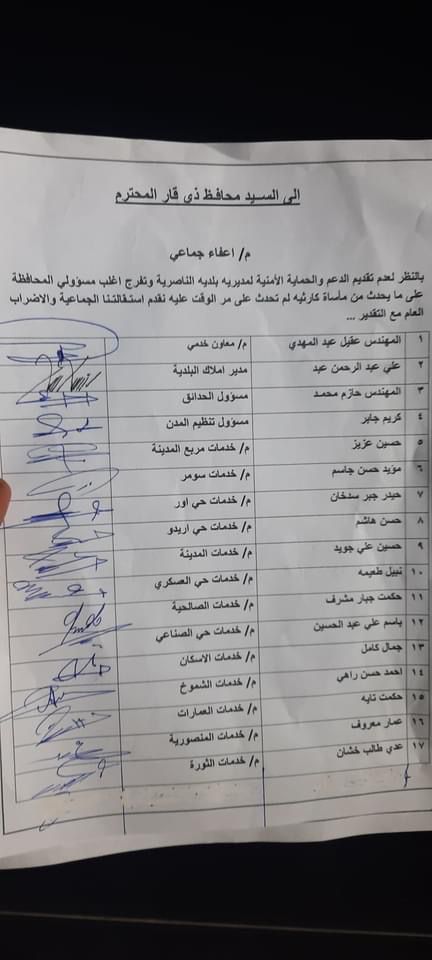 الى السيد محافظ ذي قار المحترم
م/ اعفاء جماعي
بالنظر لعدم تقديم الدعم والحماية الأمنية لمديريه بلديه الناصرية وتفرج اغلب مسؤولي المحافظة
على ما يحدث من مأساة كارثيه لم تحدث على مر الوقت عليه نقدم استقالتنا الجماعية والاضراب
العام مع التقدير ...
١ المهندس عقيل عبد المهدي م/ معاون خدمي
٢ علي عبد الرحمن عبد مدير املاك البلدية
٣ المهندس حازم محمد مسؤول الحدائق
٤ كريم جابر مسؤول تنظيم المدن
٥ حسين عزيز م/ خدمات مربع المدينة
٦ مؤيد حسن جاسم م/ خدمات سومر
٧ حيدر جبر سدخان م/ خدمات حي اور
٨ حسن هاشم م/ خدمات حي اريدو
٩ حسين علي جويد م/ خدمات المدينة
١٠ نبيل طعيمه م/ خدمات حي العسكري
١١ حكمت جبار مشرف م/ خدمات الصالحية
١٢ باسم علي عبد الحسين م/ خدمات حي الصناعي
١٣ جمال كامل م/ خدمات الاسكان
١٤ احمد حسن راهي م/ خدمات الشموخ
١٥ حكمت تايه م/ خدمات العمارات
١٦ عمار معروف م/ خدمات المنصورية
١٧ عدي طالب خشان م/ خدمات الثورة